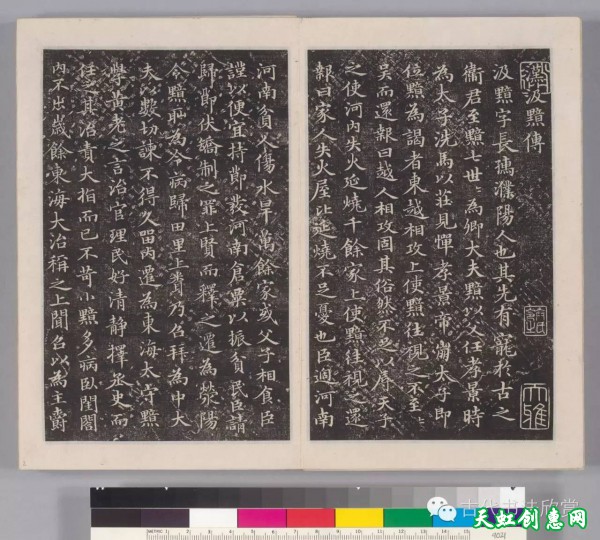 汲黯傳
汲黯字長孺濮陽人也其先有寵於古之
衞君至黯七世〻為卿大夫黯以父任孝景時
為太子洗馬以莊見憚孝景帝崩太子即
位黯為謁者東越相攻上使黯往視之不至〻
吳而還報曰越人相攻固其俗然不足以辱天子
之使河內失火延燒千餘家上使黯往視之還
報曰家人失火屋比延燒不足憂也臣過河南
大雅
河南貧人傷水旱萬餘家或父子相食臣
謹以便宜持節發河南倉粟以振貧民臣請
歸節伏矯制之罪上賢而釋之遷為滎陽
令黯恥為令病歸田里上聞乃召拜為中大
夫以數切諫不得久留內遷為東海太守黯
學黃老之言治官理民好清靜擇丞史而
任之其治責大指而已不苛小黯多病臥閨閤
內不出歲餘東海大治稱之上聞召以為主爵
古代书法欣赏
天虹创惠网